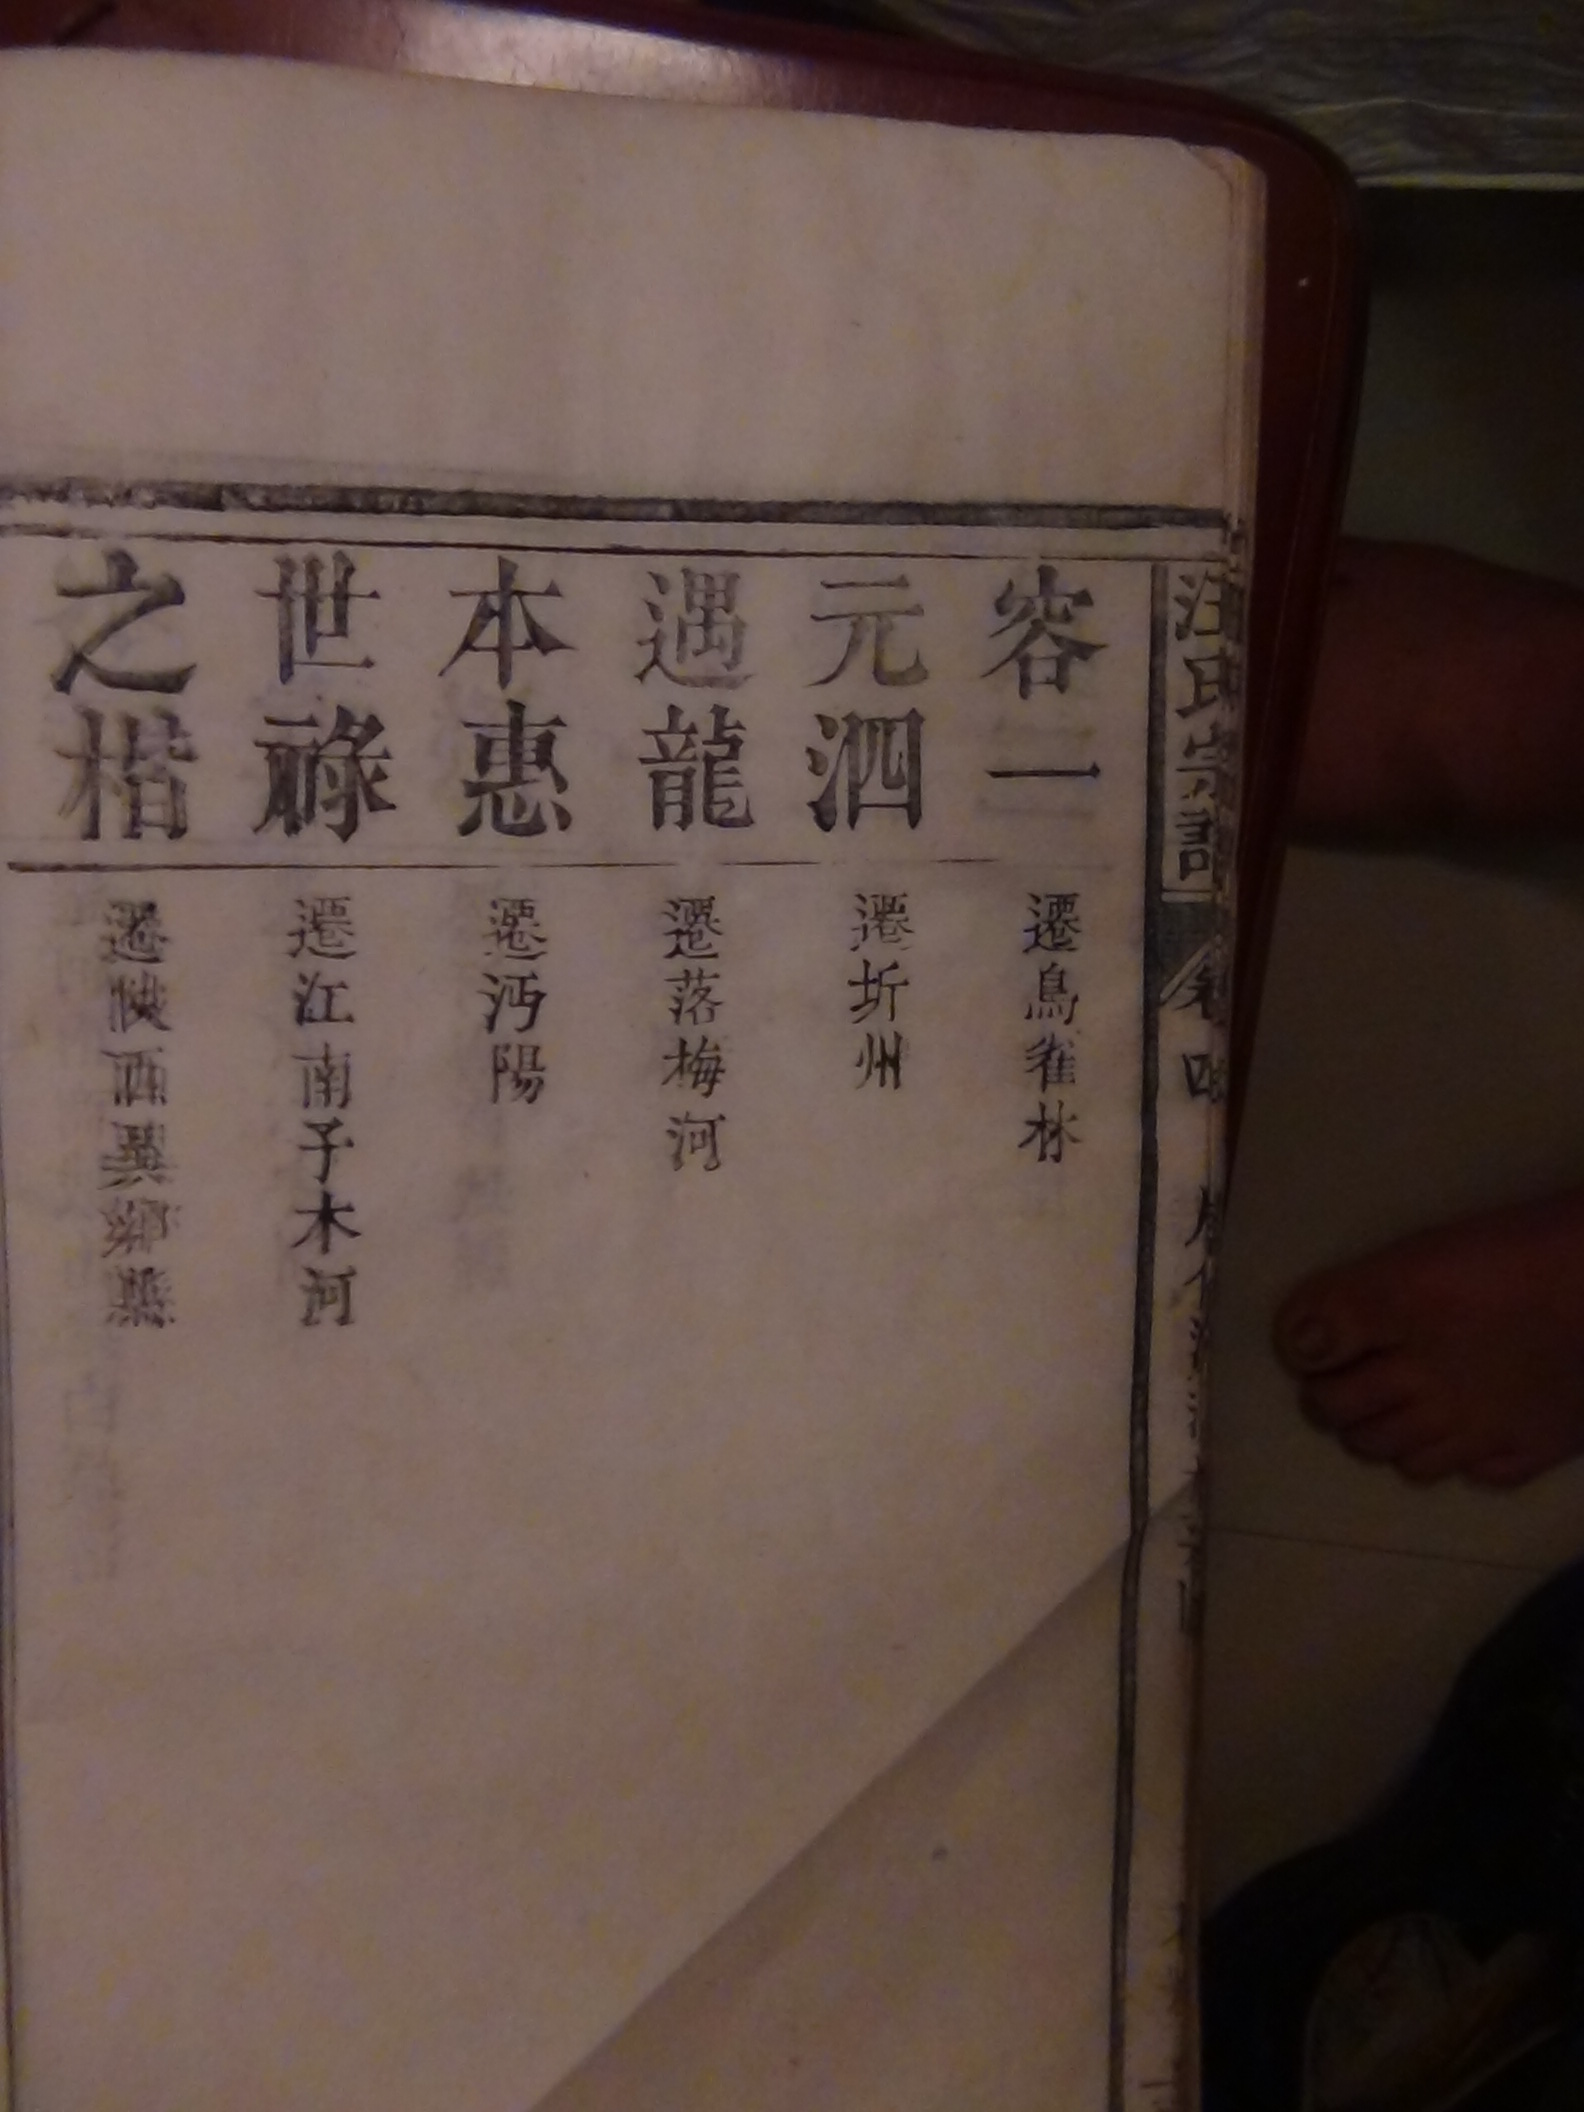 汪氏宗譜
卷四
容一
遷鳥雀林
元泗
遷圻州
遇龍
遷落梅河
本惠
遷沔陽
世祿
遷江南子木河
之楷
遷陝西異鄉縣